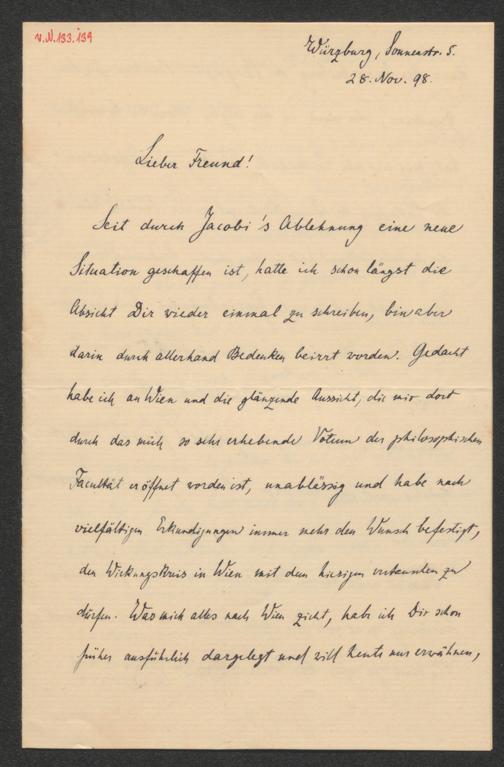 v. N. 133. 139
Würzburg, Sonnenstr. 5.
28. Nov. 98.
Lieber Freund!
Seit durch Jacobi's Ablehnung eine neue
Situation geschaffen ist, hatte ich schon längst die
Absicht Dir wieder einmal zu schreiben, bin aber
darin durch allerhand Bedenken beirrt worden. Gedacht
habe ich an Wien und die glänzende Aussicht, die mir dort
durch das mich so sehr erhebende Votum der philosophischen
Facultät eröffnet worden ist, unablässig und habe nach
vielfältigen Erkundigungen immer mehr den Wunsch befestigt,
den Wirkungskreis in Wien mit dem hiesigen vertauschen zu
dürfen. Was mich alles nach Wien zieht, habe ich Dir schon
früher ausführlich dargelegt und will heute nur erwähnen,